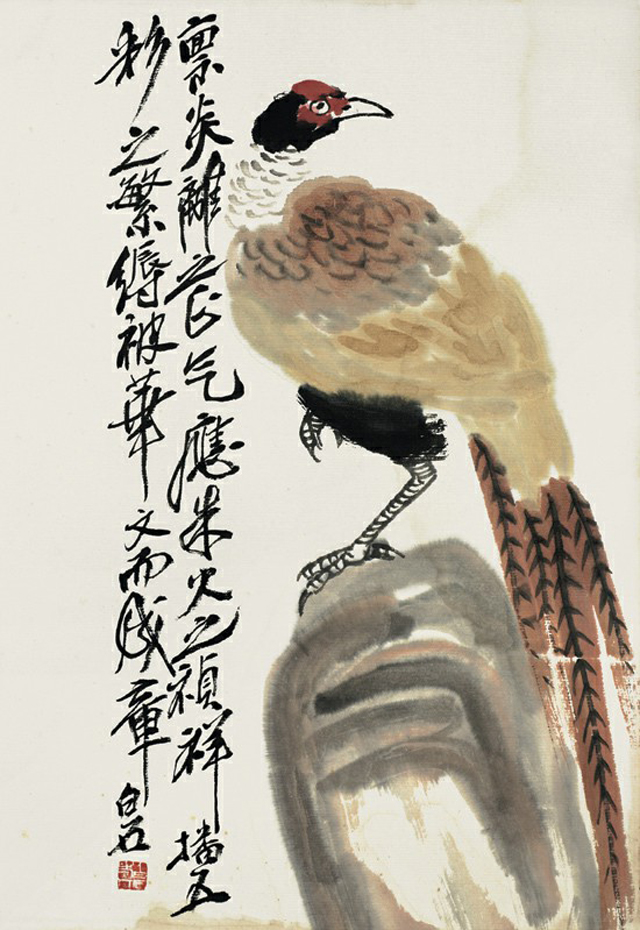 禀炎離之正气應朱火之禎祥播五
彩之繁縟被華文而成章
白石